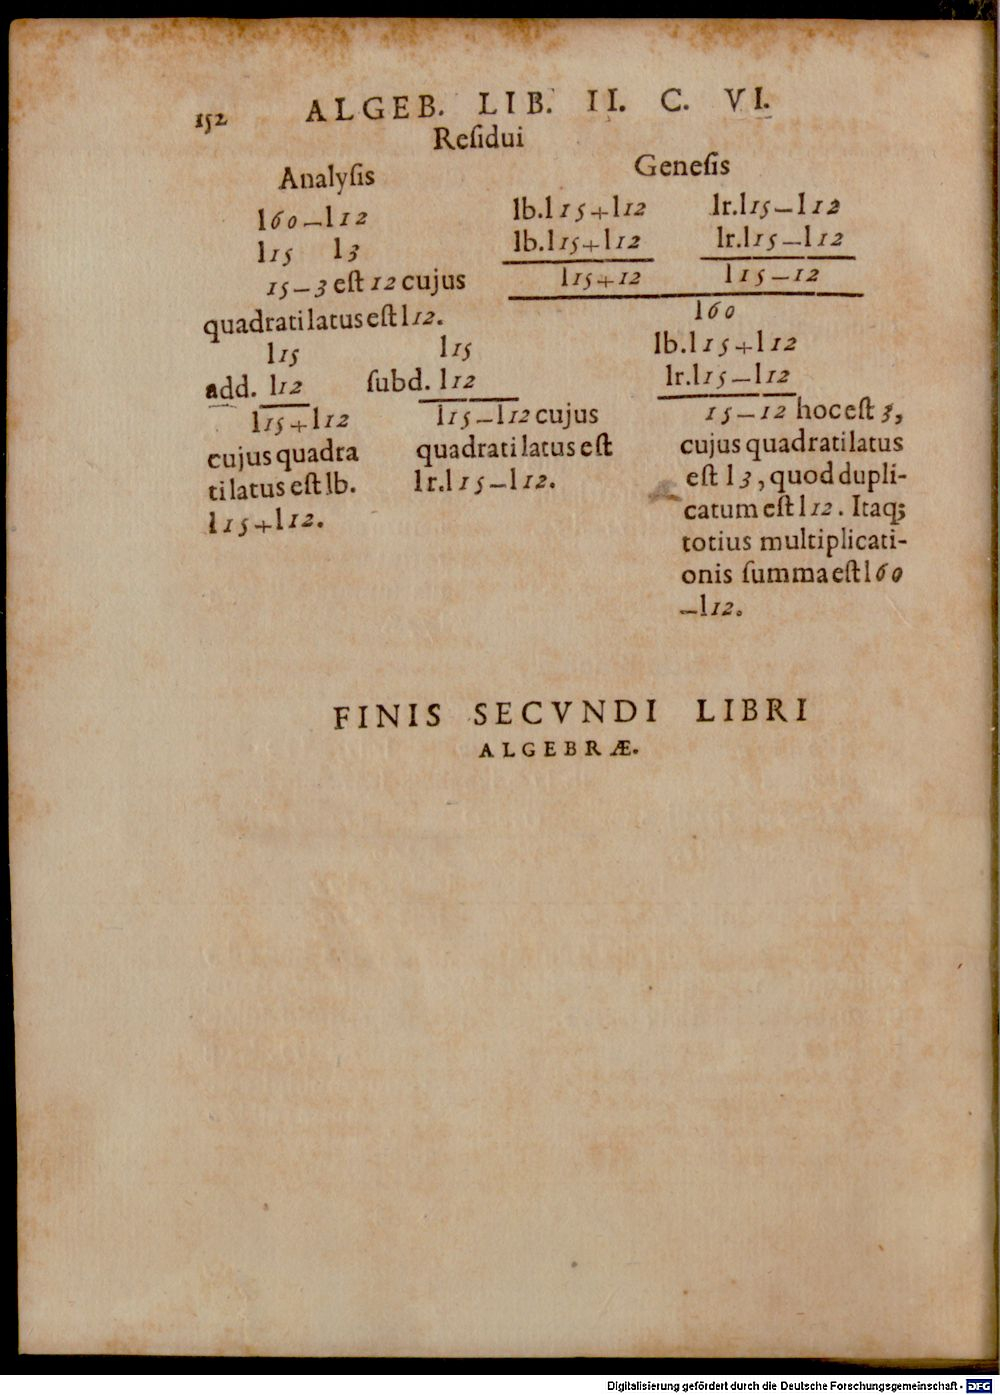 152 ALGEB. LIB. II. C. VI.
Reſidui
Analyſis
l60−l12
l15 l3
15−3 eſt 12 cujus
quadrati latus eſt l12.
l15
add. l12
l15+l12
cujus quadra
ti latus eſt lb.
l15+l12.
l15
ſubd. l12
l15−l12 cujus
quadrati latus eſt
lr.l15−l12.
Geneſis
lb.l15+l12 lr.l15−l12
lb.l15+l12 lr.l15−l12
l15+12 l15−12
l60
lb.l15+l12
lr.l15−l12
15−12 hoc eſt 3,
cujus quadrati latus
eſt l3, quod dupli-
catum eſt l12. Itaq;
totius multiplicati-
onis ſumma eſt l60
−l12.
FINIS SECVNDI LIBRI
ALGEBRÆ.
Digitalisierung gefördert durch die Deutsche Forschungsgemeinschaft - DFG